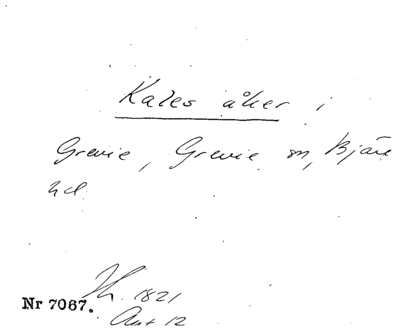 Kales åker i
Grevie, Grevie sn, Bjäre
hd.
1821
Nr 7067. Ant 12